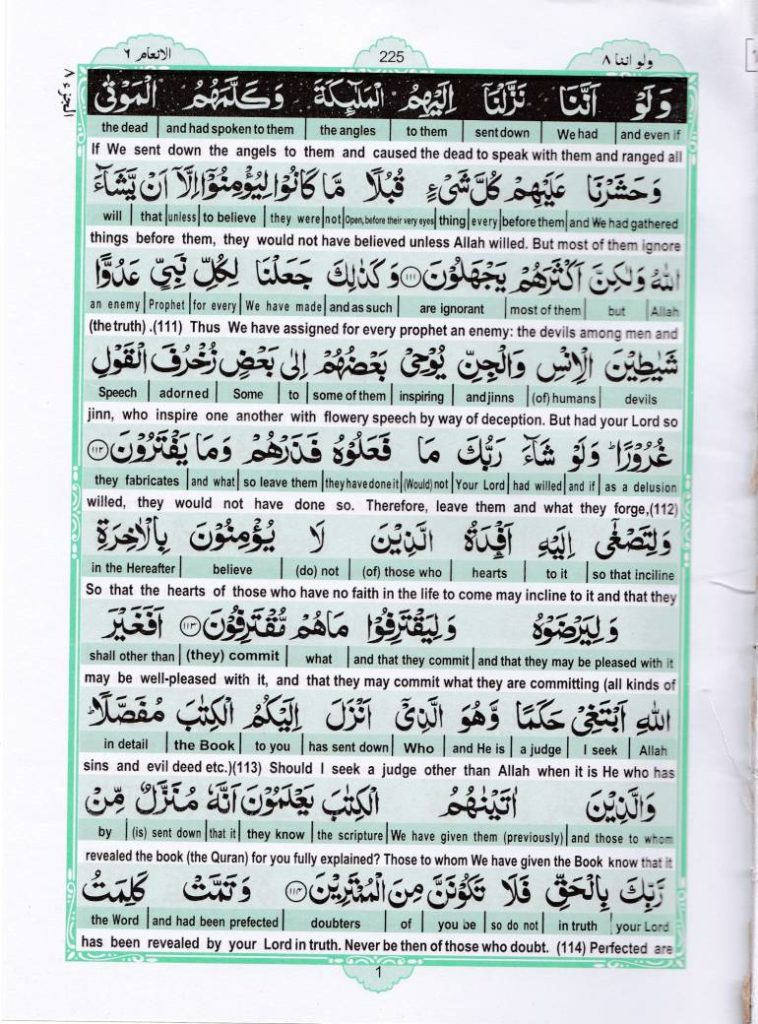 ولو اننا ٨
225
الانعام ٦
الجزء ٨
وَلَوْ اَنَّنَا نَزَّلْنَاۤ اِلَيْهِمُ الْمَلٰٓئِكَةَ وَكَلَّمَهُمُ الْمَوْتٰى
the dead | and had spoken to them | the angles | to them | sent down | We had | and even if
If We sent down the angels to them and caused the dead to speak with them and ranged all
وَحَشَرْنَا عَلَيْهِمْ كُلَّ شَيْءٍ قُبُلًا مَّا كَانُوْا لِيُؤْمِنُوْۤا اِلَّاۤ اَنْ يَّشَآءَ
will | that | unless | to believe | they were | not | Open, before their very eyes | thing | every | before them | and We had gathered
things before them, they would not have believed unless Allah willed. But most of them ignore
اللّٰهُ وَلٰكِنَّ اَكْثَرَهُمْ يَجْهَلُوْنَ ١١١ وَكَذٰلِكَ جَعَلْنَا لِكُلِّ نَبِيٍّ عَدُوًّا
an enemy | Prophet | for every | We have made | and as such | are ignorant | most of them | but | Allah
(the truth) .(111) Thus We have assigned for every prophet an enemy: the devils among men and
شَيٰطِيْنَ الْاِنْسِ وَالْجِنِّ يُوْحِيْ بَعْضُهُمْ اِلٰى بَعْضٍ زُخْرُفَ الْقَوْلِ
Speech | adorned | Some | to | some of them | inspiring | and jinns | (of) humans | devils
jinn, who inspire one another with flowery speech by way of deception. But had your Lord so
غُرُوْرًا ؕ وَلَوْ شَآءَ رَبُّكَ مَا فَعَلُوْهُ فَذَرْهُمْ وَمَا يَفْتَرُوْنَ ١١٢
they fabricates | and what | so leave them | they have done it | (Would) not | Your Lord | had willed | and if | as a delusion
willed, they would not have done so. Therefore, leave them and what they forge,(112)
وَلِتَصْغٰۤى اِلَيْهِ اَفْـِٕدَةُ الَّذِيْنَ لَا يُؤْمِنُوْنَ بِالْاٰخِرَةِ
in the Hereafter | believe | (do) not | (of) those who | hearts | to it | so that inciline
So that the hearts of those who have no faith in the life to come may incline to it and that they
وَلِيَرْضَوْهُ وَلِيَقْتَرِفُوْا مَا هُمْ مُّقْتَرِفُوْنَ ١١٣ اَفَغَيْرَ
shall other than | (they) commit | what | and that they commit | and that they may be pleased with it
may be well-pleased with it, and that they may commit what they are committing (all kinds of
اللّٰهِ اَبْتَغِيْ حَكَمًا وَّهُوَ الَّذِيْۤ اَنْزَلَ اِلَيْكُمُ الْكِتٰبَ مُفَصَّلًا ؕ
in detail | the Book | to you | has sent down | Who | and He is | a judge | I seek | Allah
sins and evil deed etc.)(113) Should I seek a judge other than Allah when it is He who has
وَالَّذِيْنَ اٰتَيْنٰهُمُ الْكِتٰبَ يَعْلَمُوْنَ اَنَّهٗ مُنَزَّلٌ مِّنْ
by | (is) sent down | that it | they know | the scripture | We have given them (previously) | and those to whom
revealed the book (the Quran) for you fully explained? Those to whom We have given the Book know that it
رَّبِّكَ بِالْحَقِّ فَلَا تَكُوْنَنَّ مِنَ الْمُمْتَرِيْنَ ١١٤ وَتَمَّتْ كَلِمَتُ
the Word | and had been prefected | doubters | of | you be | so do not | in truth | your Lord
has been revealed by your Lord in truth. Never be then of those who doubt. (114) Perfected are
1